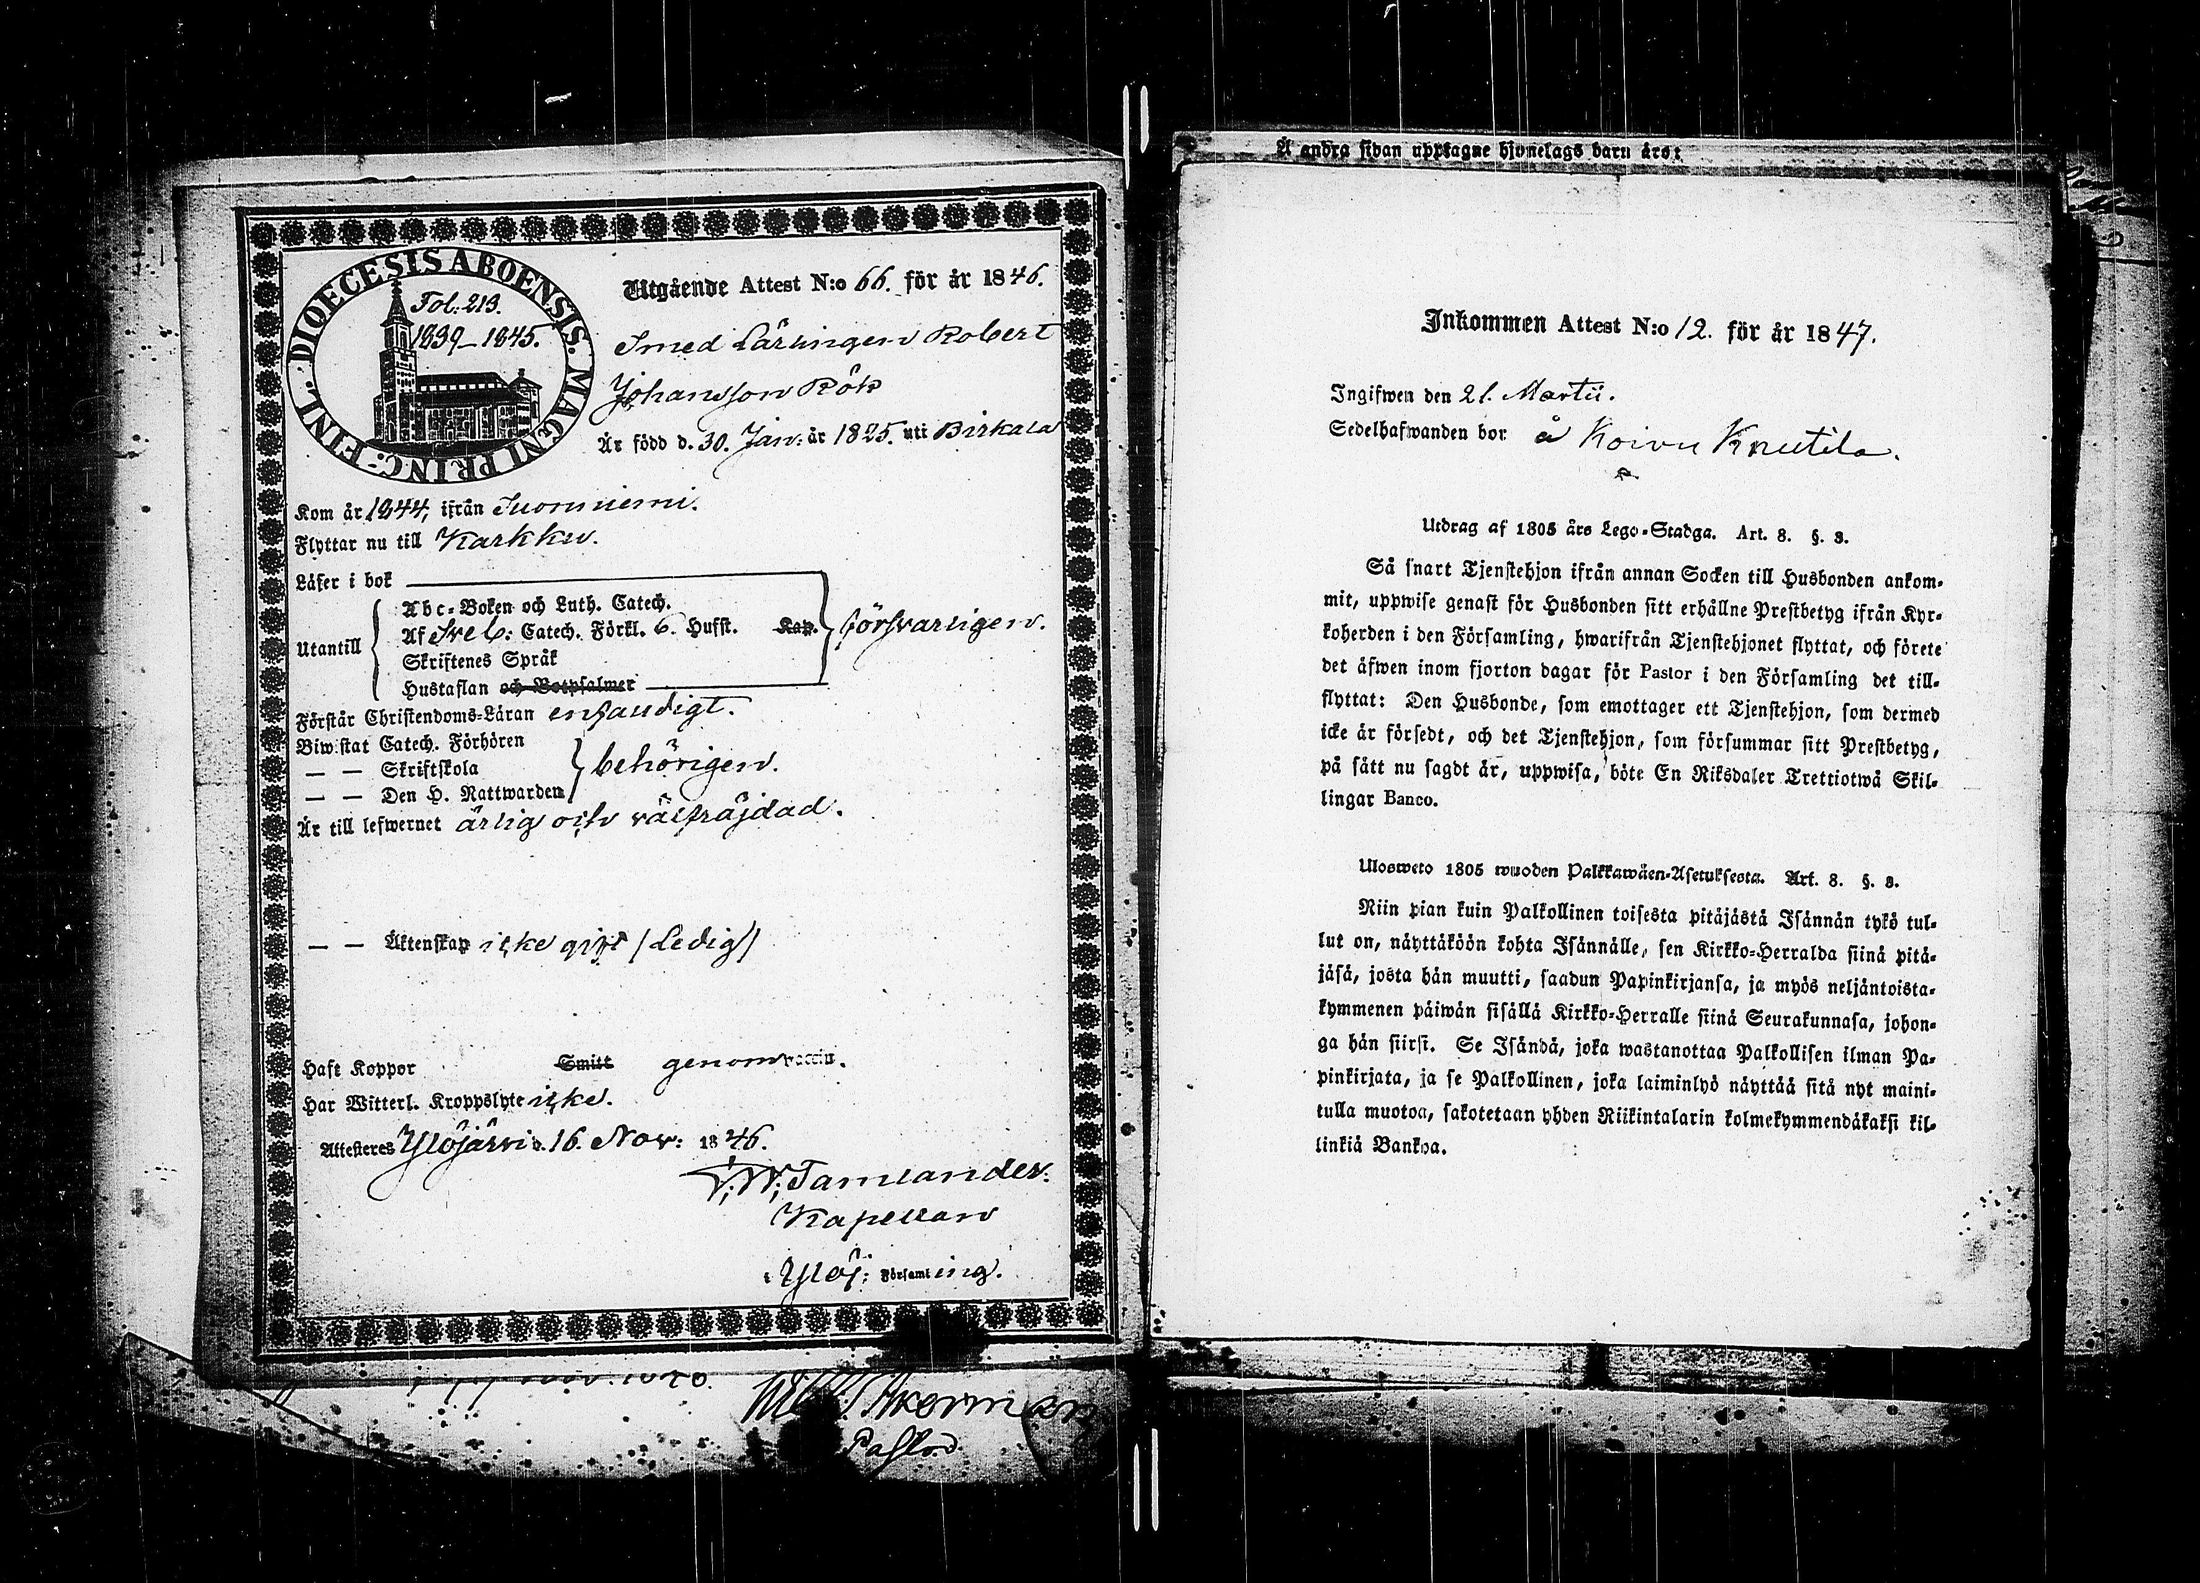 DIOECESIS ABOENSIS. MAGNI PRINC: FINL.
Fol: 213.
1839-1845.
Utgående Attest N:o 66. för år 1846.
Smed Lärlingen Robert
Johansson Rök
Är född d. 30. Jan: år 1825. uti Birkala
Kom år 1844, ifrån Suoniemi.
Flyttar nu till Karkku.
Läser i bok
Utantill
Abc-Boken och Luth. Catech.
Af Sveb: Catech. Förkl. 6. Hufst. Kap. försvarligen.
Skriftenes Språk
Hustaflan och Botpsalmer
Förstår Christendoms-Läran enfaldigt.
Biwistat Catech. Förhören
— — Skriftskola behörigen.
— — Den H. Nattwarden
Är till lefwernet ärlig och välfräjdad.
— — Äktenskap icke gift / Ledig /
Haft Koppor Smitt genom vaccin.
Har Witterl. Kroppslyte icke.
Attesteres Ylöjärvi d. 16. Nov: 1846.
Tamlander.
Kapellan
i Ylöj: Församling.
Åkerman
Pastor
Å andra sidan upptagne hjonelags barn äro:
Inkommen Attest N:o 12. för år 1847.
Ingifwen den 21. Martii.
Sedelhafwanden bor å Koivu Knutila.
Utdrag af 1805 års Lego-Stadga. Art. 8. §. 3.
Så snart Tjenstehjon ifrån annan Socken till Husbonden ankom-
mit, uppwise genast för Husbonden sitt erhållne Prestbetyg ifrån Kyr-
koherden i den Församling, hwarifrån Tjenstehjonet flyttat, och förete
det äfwen inom fjorton dagar för Pastor i den Församling det till-
flyttat: Den Husbonde, som emottager ett Tjenstehjon, som dermed
icke är försedt, och det Tjenstehjon, som försummar sitt Prestbetyg,
på sätt nu sagdt är, uppwisa, böte En Riksdaler Trettiotwå Skil-
lingar Banco.
Ulosweto 1805 wuoden Palkkawäen-Asetuksesta. Art. 8. §. 3.
Niin pian kuin Palkollinen toisesta pitäjästä Isännän tykö tul-
lut on, näyttäköön kohta Isännälle, sen Kirkko-Herralda siinä pitä-
jäsä, josta hän muutti, saadun Papinkirjansa, ja myös neljäntoista-
kymmenen päiwän sisällä Kirkko-Herralle siinä Seurakunnasa, johon-
ga hän siirsi. Se Isändä, joka wastanottaa Palkollisen ilman Pa-
pinkirjata, ja se Palkollinen, joka laiminlyö näyttää sitä nyt maini-
tulla muotoa, sakotetaan yhden Riikintalarin kolmekymmendäkaksi kil-
linkiä Bankoa.